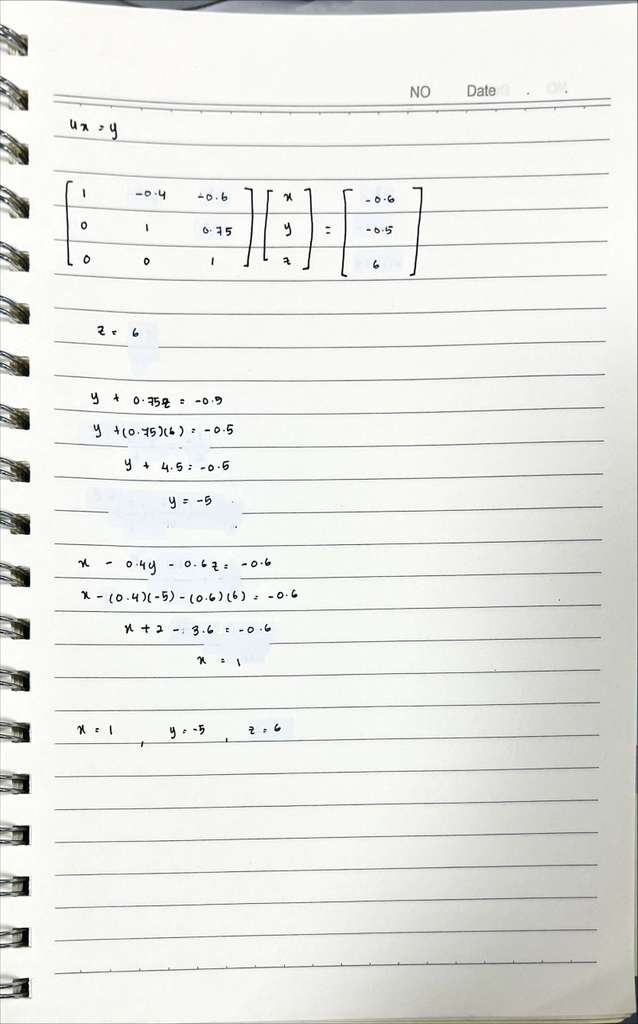 NO Date
ux = y
1 -0.4 -0.6 x -0.6
0 1 0.75 y = -0.5
0 0 1 z 6
z = 6
y + 0.75z = -0.5
y +(0.75)(6) = -0.5
y + 4.5 = -0.5
y = -5
x - 0.4y - 0.6z = -0.6
x - (0.4)(-5) - (0.6)(6) = -0.6
x + 2 - 3.6 = -0.6
x = 1
x = 1 , y = -5 , z = 6